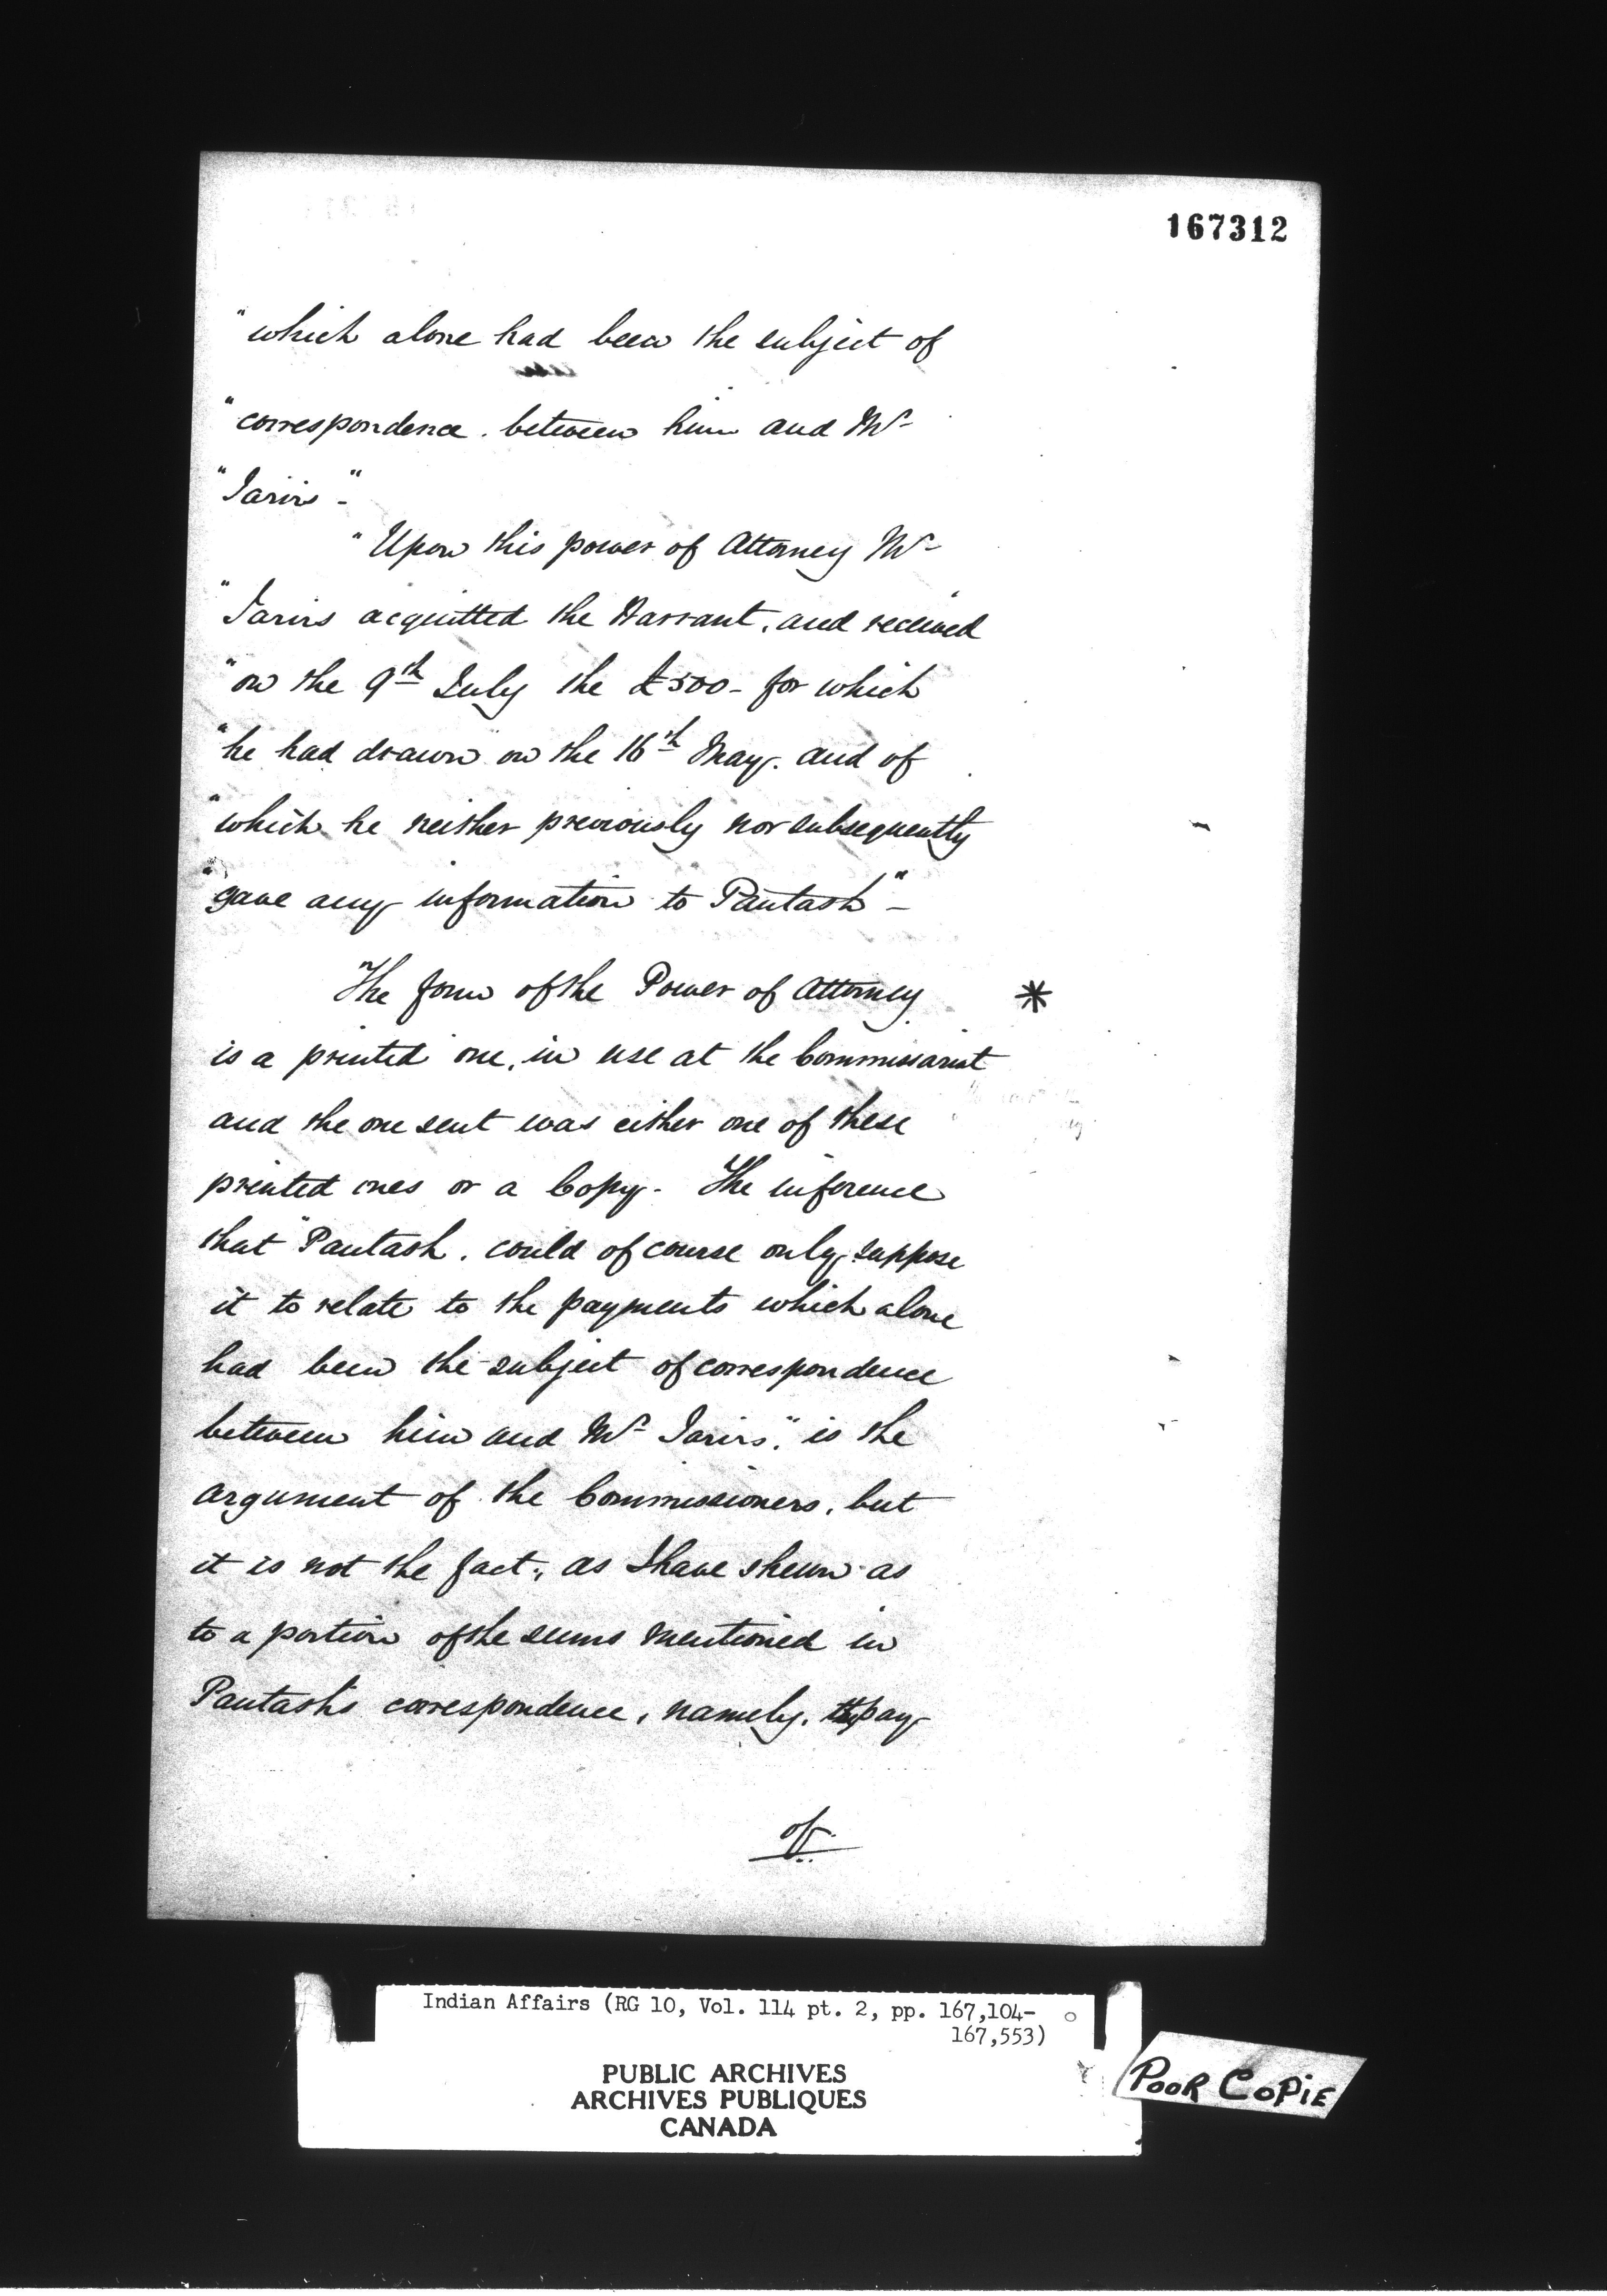 167312
"which alone had been the subject of
"correspondence between him and Mr
"Jarvis"-
"Upon this power of Attorney Mr
"Jarvis acquitted the Warrant, and received
"on the 9th July the £500- for which
"he had drawn on the 16th May. and of
"which he neither previously nor subsequently
"gave any information to Pautash"-
The form of the Power of Attorney *
is a printed one, in use at the Commissariat
and the one sent was either one of these
printed ones or a Copy. The inference
that "Pautash. could of course only suppose
it to relate to the payments which alone
had been the subject of correspondence
between him and Mr Jarvis", is the
argument of the Commissioners, but
it is not the fact, as I have shewn as
to a portion of the sums mentioned in
Pautash's correspondence, namely, the pay
of
Indian Affairs (RG 10, Vol. 114 pt. 2, pp. 167,104-
167,553)
PUBLIC ARCHIVES
ARCHIVES PUBLIQUES
CANADA
POOR COPIE